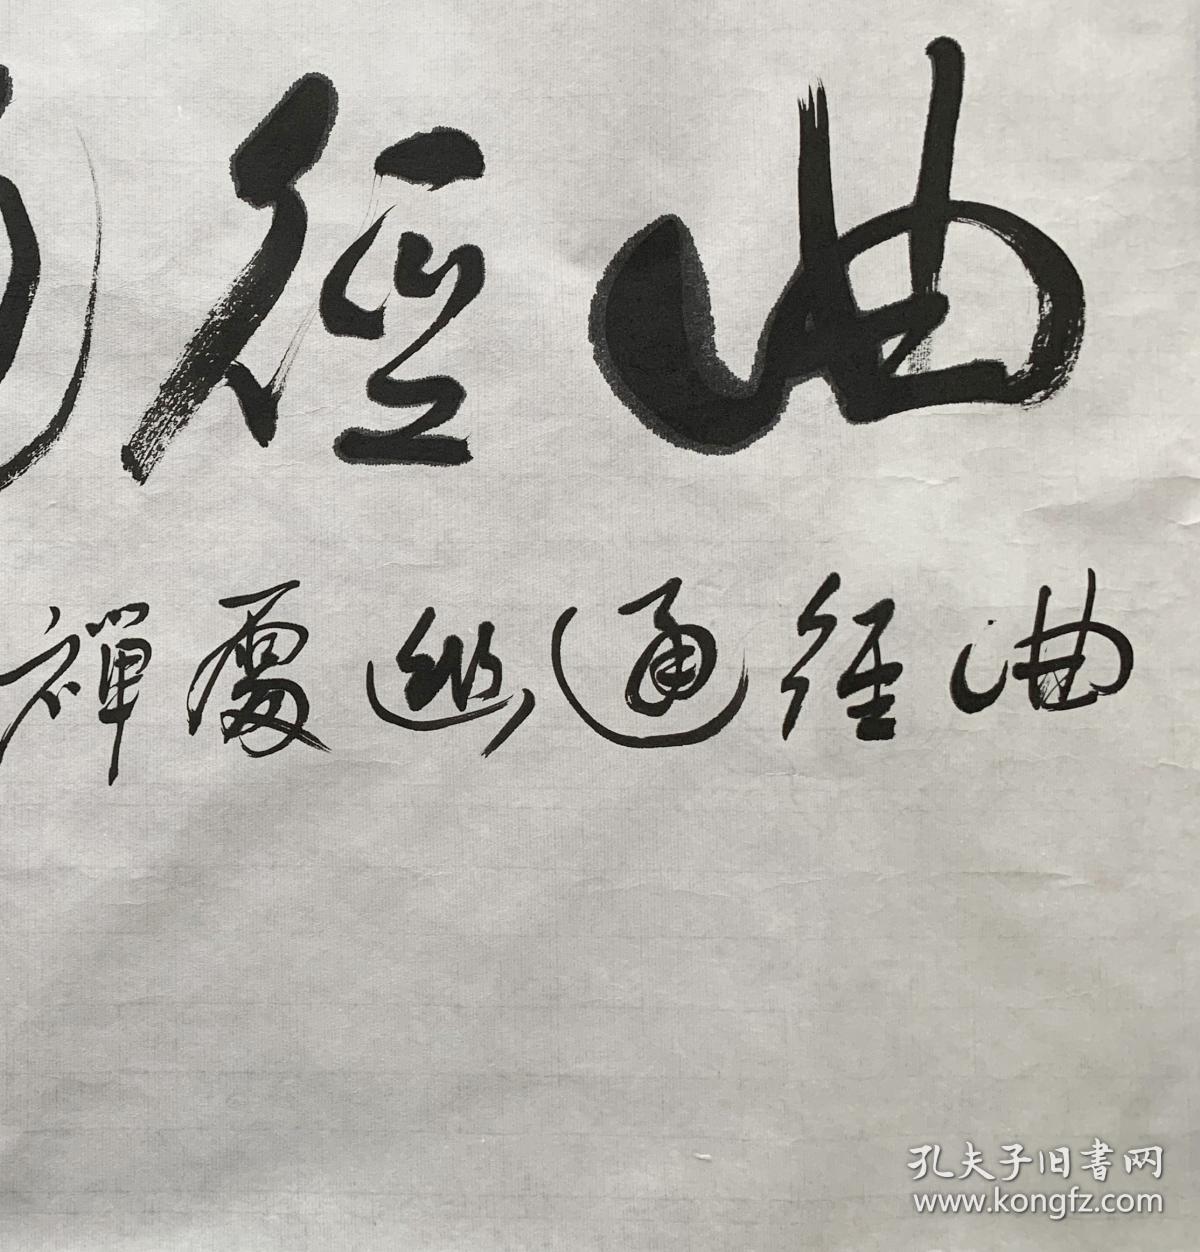 曲徑
曲徑通幽處禪
孔夫子旧書网
www.kongfz.com